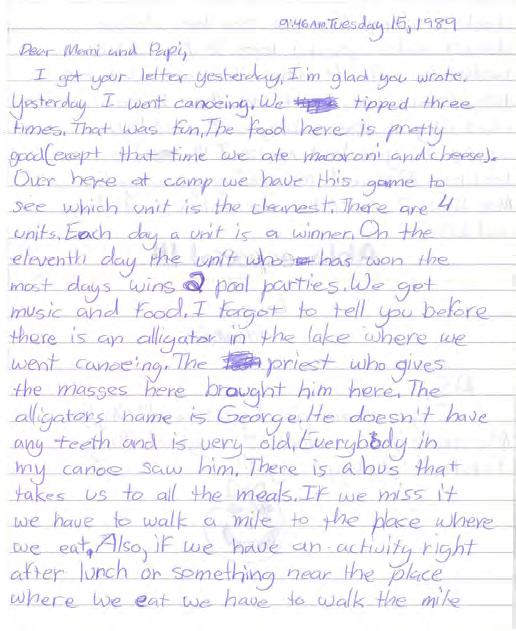 9:46AM.Tuesday 15, 1989
Dear Mami and Papi,
I got your letter yesterday. I'm glad you wrote.
Yesterday I went canoeing. We tipped three
times. That was fun. The food here is pretty
good (except that time we ate macaroni and cheese).
Over here at camp we have this game to
see which unit is the cleanest. There are 4
units. Each day a unit is a winner. On the
eleventh day the unit who has won the
most days wins 2 pool parties. We get
music and food. I forgot to tell you before
there is an alligator in the lake where we
went canoeing. The priest who gives
the masses here brought him here. The
alligators name is George. He doesn't have
any teeth and is very old. Everybody in
my canoe saw him. There is a bus that
takes us to all the meals. If we miss it
we have to walk a mile to the place where
we eat. Also, if we have an activity right
after lunch or something near the place
where we eat we have to walk the mile